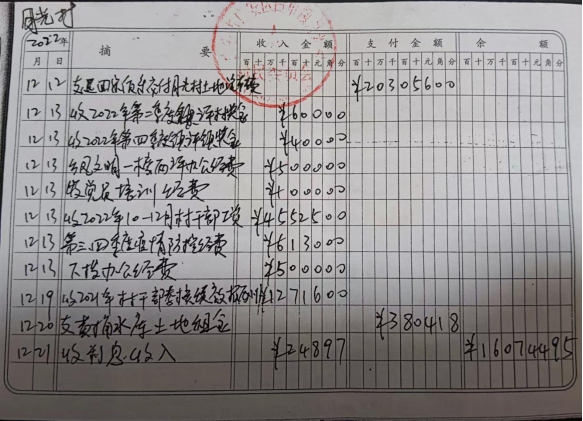 月光村
2022年 摘要 收入金额 支付金额 余额
月 日 百十万千百十元角分 百十万千百十元角分 百十万千百十元角分
12 12 月光村土地 费 ¥20305600
12 13 收2022年第三季度 奖金 ¥60000
12 13 收2022年第四季度 奖金 ¥40000
12 13 乡风文明一榜两评办公经费 ¥500000
12 13 党员培训经费 ¥100000
12 13 收2022年10-12月村干部工资 ¥4552500
12 13 第三、四季度疫情防控经费 ¥613000
12 13 下拨办公经费 ¥500000
12 19 收2021年村干部 绩效 ¥1271600
12 20 支 水库土地租金 ¥380418
12 21 收利息收入 ¥24897 ¥16074495